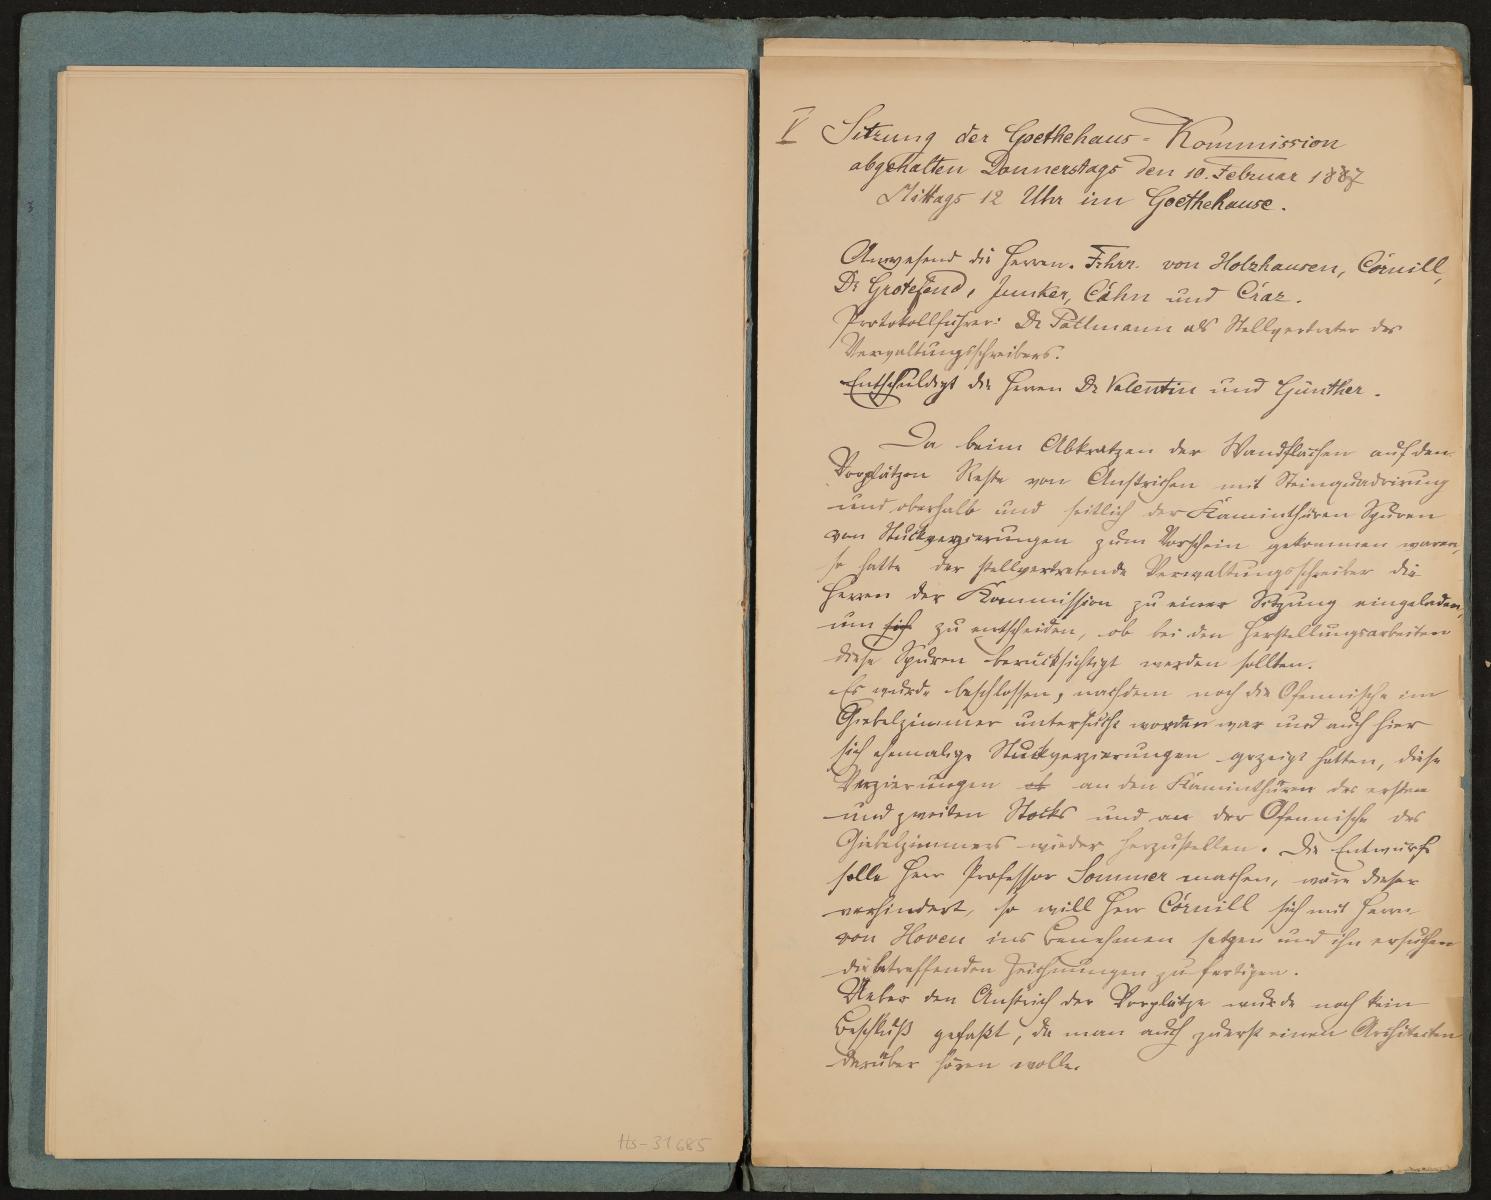 V Sitzung der Goethehaus-Kommission
abgehalten Donnerstags den 10. Februar 1887
Mittags 12 Uhr im Goethehause.
Anwesend die Herren. Frhrr. von Holzhausen, Cornill,
Dr Grotefend, Junker, Cahn und Craz.
Protokollführer: Dr Pallmann als Stellvertreter des
Verwaltungsschreibers.
Entschuldigt die Herren Dr Valentin und Günther.
Da beim Abkratzen der Wandflächen auf den
Vorplätzen Reste von Anstrichen mit Steinquadrirung
und oberhalb und seitlich der Kaminthüren Spuren
von Stuckverzierungen zum Vorschein gekommen waren,
so hatte der stellvertretende Verwaltungsschreiber die
Herren der Kommission zu einer Sitzung eingeladen,
um sich zu entscheiden, ob bei den Herstellungsarbeiten
diese Spuren berücksichtigt werden sollten.
Es wurde beschlossen, nachdem noch die Ofennische im
Giebelzimmer untersucht worden war und auch hier
sich ehemalige Stuckverzierungen gezeigt hatten, diese
Verzierungen an den Kaminthüren des ersten
und zweiten Stocks und an der Ofennische des
Giebelzimmers wieder herzustellen. Die Entwürfe
solle Herr Professor Sommer machen, wäre dieser
verhindert, so will Herr Cornill sich mit Herrn
von Hoven ins Benehmen setzen und ihn ersuchen
die betreffenden Zeichnungen zu fertigen.
Ueber den Anstrich der Vorplätze wurde noch kein
Beschluß gefaßt, da man auch zuerst einen Architecten
darüber hören wolle.
Hs-31685